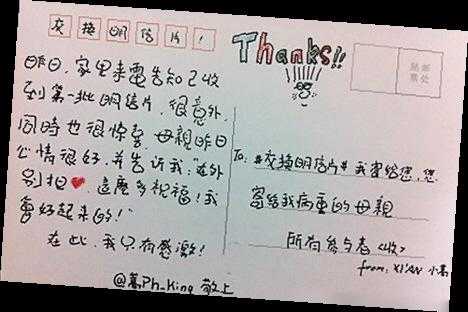 交换明信片!
Thanks!!
贴邮票处
昨日,家里来電告知已收
到第一批明信片,很意外,
同時也很惊喜,母親昨日
心情很好,并告诉我:"在外
别担❤,這麼多祝福!我
會好起来的!"
在此,我只有感激!
@蒿Ph_King 敬上
To: #交换明信片# 我寄给您,您
寄给我病重的母親
所有参与者<收>
from: XI'AN 小蒿